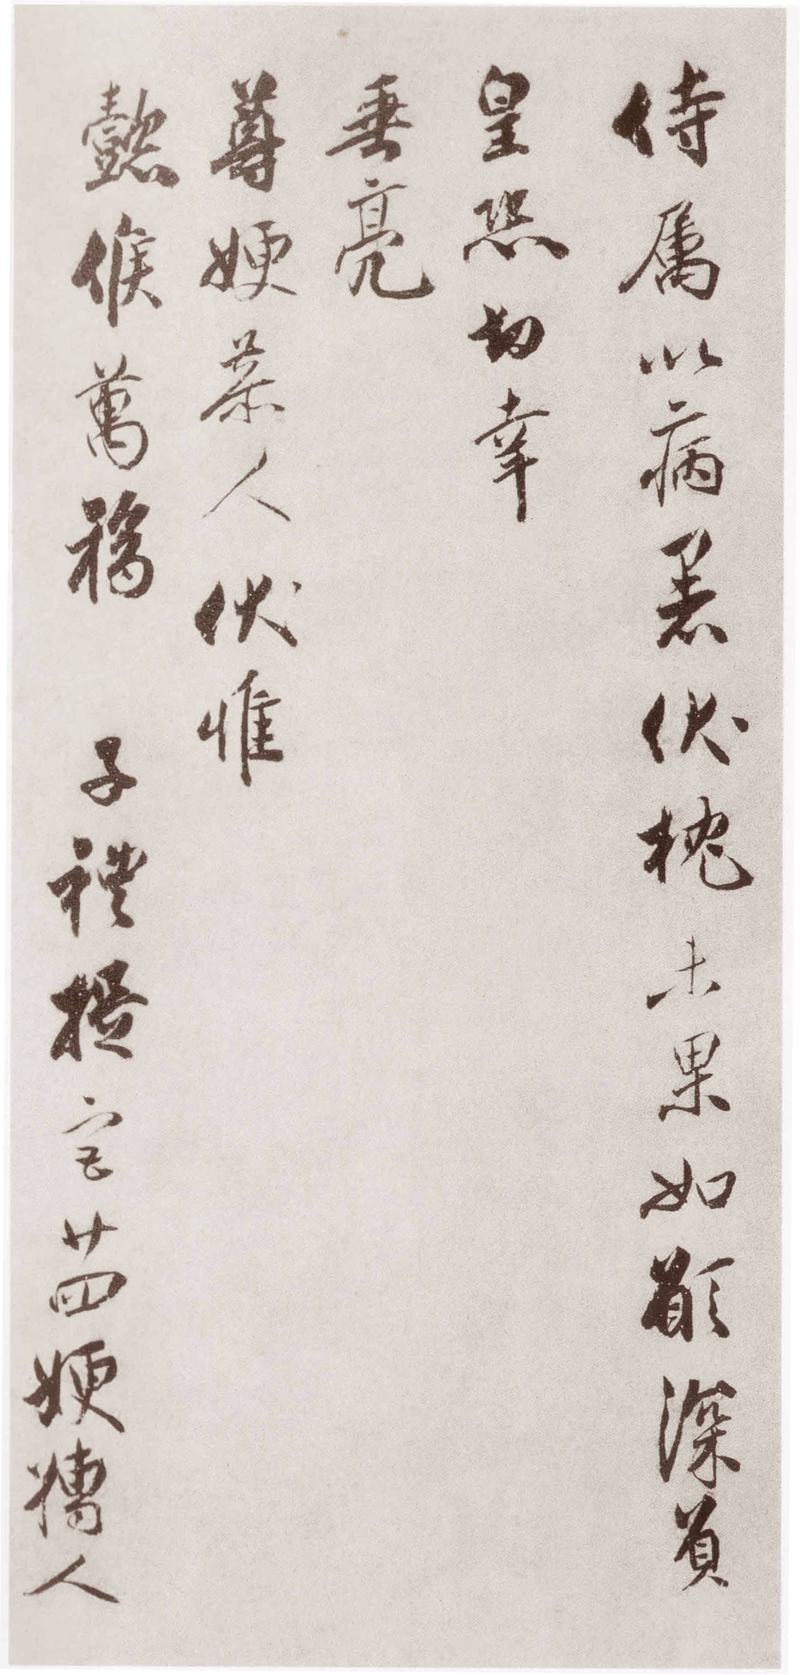 侍属以病恙伏枕未果如願深負
皇恐切幸
垂亮
尊㛐恭人伏惟
懿候萬福 子禮提宮廿四㛐孺人